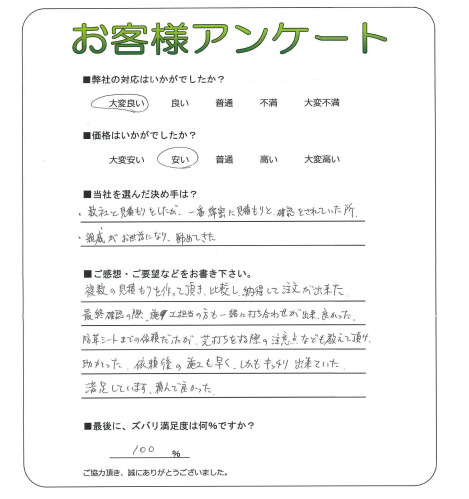 お客様アンケート
■弊社の対応はいかがでしたか?
大変良い 良い 普通 不満 大変不満
■価格はいかがでしたか?
大変安い 安い 普通 高い 大変高い
■当社を選んだ決め手は?
・数社と見積もりをしたが、一番綿密に見積もりと、確認をされていた所。
・親戚がお世話になり、勧めてきた
■ご感想・ご要望などをお書き下さい。
複数の見積もりを作って頂き、比較し、納得して注文が出来た
最終確認の際、施工担当の方も一緒に打ち合わせが出来、良かった。
防草シートまでの依頼だったが、芝打ちをする際の注意点なども教えて頂け、
助かった。依頼後の施工も早く、しかもキッチリ出来ていた。
満足しています。頼んで良かった。
■最後に、ズバリ満足度は何%ですか?
100 %
ご協力頂き、誠にありがとうございました。